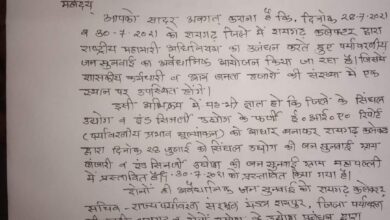 महोदय,
आपको सादर अवगत कराना है कि, दिनांक 28-7-2021
व 30-7-2021 को रायगढ़ जिले में रायगढ़ कलेक्टर द्वारा
राष्ट्रीय महामारी अधिनियम का उल्लंघन करते हुए पर्यावरणीय
जन सुनवाई का अवैधानिक आयोजन किया जा रहा है। जिसमें
शासकीय कर्मचारी व आम जनता हजारों की संख्या में एक
स्थान पर उपस्थित होंगे।
इसी अनुक्रम में यह भी ज्ञात हो कि जिले के सिंघल
उद्योग व एंड सिमली उद्योग के फर्जी ई.आई.ए. रिपोर्ट
(पर्यावरणीय प्रभाव मूल्यांकन) को आधार बनाकर रायगढ़ कलेक्टर
द्वारा दिनांक 28 जुलाई को सिंघल उद्योग की जन सुनवाई ग्राम
व एंड सिमली उद्योग की जन सुनवाई ग्राम महापल्ली
में प्रस्तावित है। 30-7-2021 को प्रस्तावित किया गया है।
दोनों की अवैधानिक जन सुनवाई को रायगढ़ कलेक्टर
सचिव - राज्य पर्यावरण संरक्षण मंडल रायपुर, जिला पर्यावरण